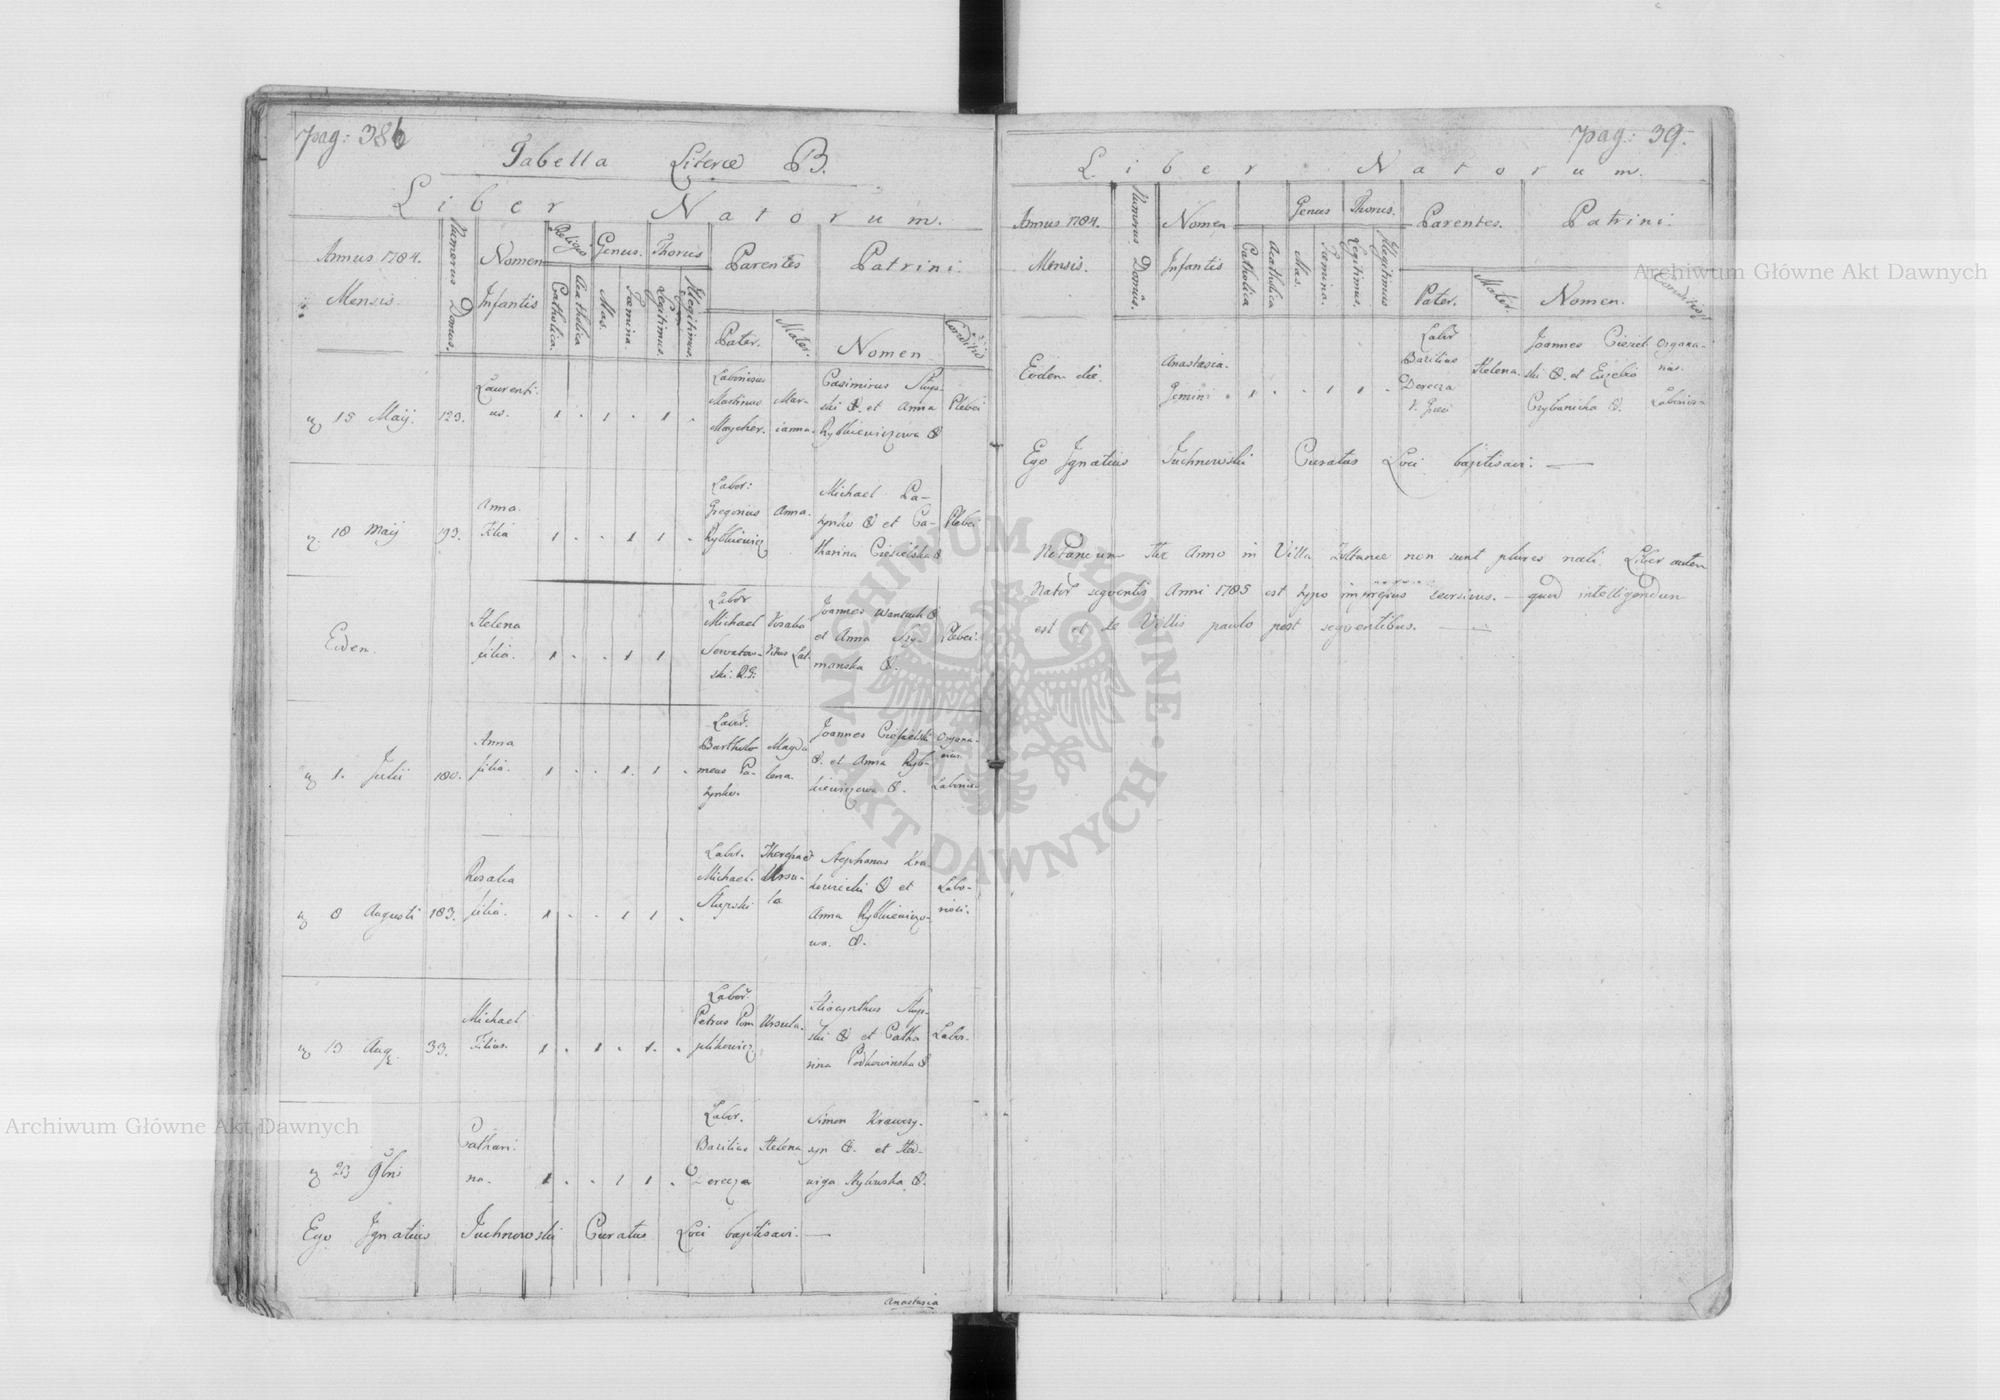 pag: 38
Tabella Literæ B.
Liber Natorum.
Annus 1784.
Mensis.
Numerus Domus.
Nomen
Infantis
Religio
Catholica.
Acatholica
Genus.
Mas.
Fœmina.
Thorus
Legitimus.
Illegitimus.
Parentes
Pater.
Mater.
Patrini.
Nomen
Conditio
15 Maij. 123.
Laurenti-
us.
1 . 1 . 1 .
Laboriosus
Martinus
Maycher.
Mar-
ianna.
Casimirus Słup-
ski et Anna
Rybkiewiczowa
Plebei
18 Maij 193.
Anna.
Filia
1 . . 1 1 .
Labor:
Gregorius
Rybkiewicz
Anna.
Michael Pa-
et Ca-
tharina Ciesielska
Plebei
Eodem.
Helena
filia.
1 . . 1 1
Labor
Michael
ski. R. G.
Joannes
et Anna Szy-
manska
Plebei.
1. Julii 180.
Anna
filia.
1 . . 1 . 1 .
Labor.
Bartholo
meus Pa-
Magda
lena.
Joannes Ciesielski
et Anna Ryb-
kiewiczowa
Organa-
rius.
Laborios-
8 Augusti 183.
Rosalia
filia.
1 . . 1 1 .
Labor.
Michael.
Słupski
Ursu-
la
Stephanus Kra-
et
Anna Rybkiewiczo-
wa.
Labo-
riosi.
13 Aug. 33.
Michael
Filius.
1 . 1 . 1 . .
Labor.
Petrus Pom
plikowicz.
Ursula.
Hiacynthus Słup-
ski et Catha
rina Podkowinska
Labor.
23 9bris
Cathari-
na.
1 . . 1 1 .
Labor.
Bazilius
Derecza
Helena
Simon Krawczy-
et Hed-
wiga
Ego Ignatius Juchnowski Curatus Loci baptisavi. —
Anastasia
pag: 39.
Liber Natorum.
Annus 1784.
Mensis.
Numerus Domûs.
Nomen
Infantis
Catholica
Acatholica
Genus
Mas.
Fœmina.
Thorus.
Legitimus.
Illegitimus
Parentes.
Pater.
Mater.
Patrini.
Nomen.
Conditio
Eodem die.
Anastasia.
Gemini.
1 . . 1 1 .
Labor
Bazilius
Derecza
Helena.
Joannes Ciesiel
ski et
Organa-
rius.
Laborios-
Ego Ignatius Juchnowski Curatus Loci baptisavi. —
Anno in Villa non sunt plures nati. Liber autem
Nator seqventis Anni 1785 est typo impressus seorsivus. — quod intelligendum
est et de Villis paulo post seqventibus. —
Archiwum Główne Akt Dawnych
ARCHIWUM GŁÓWNE
· AKT DAWNYCH ·
Archiwum Główne Akt Dawnych